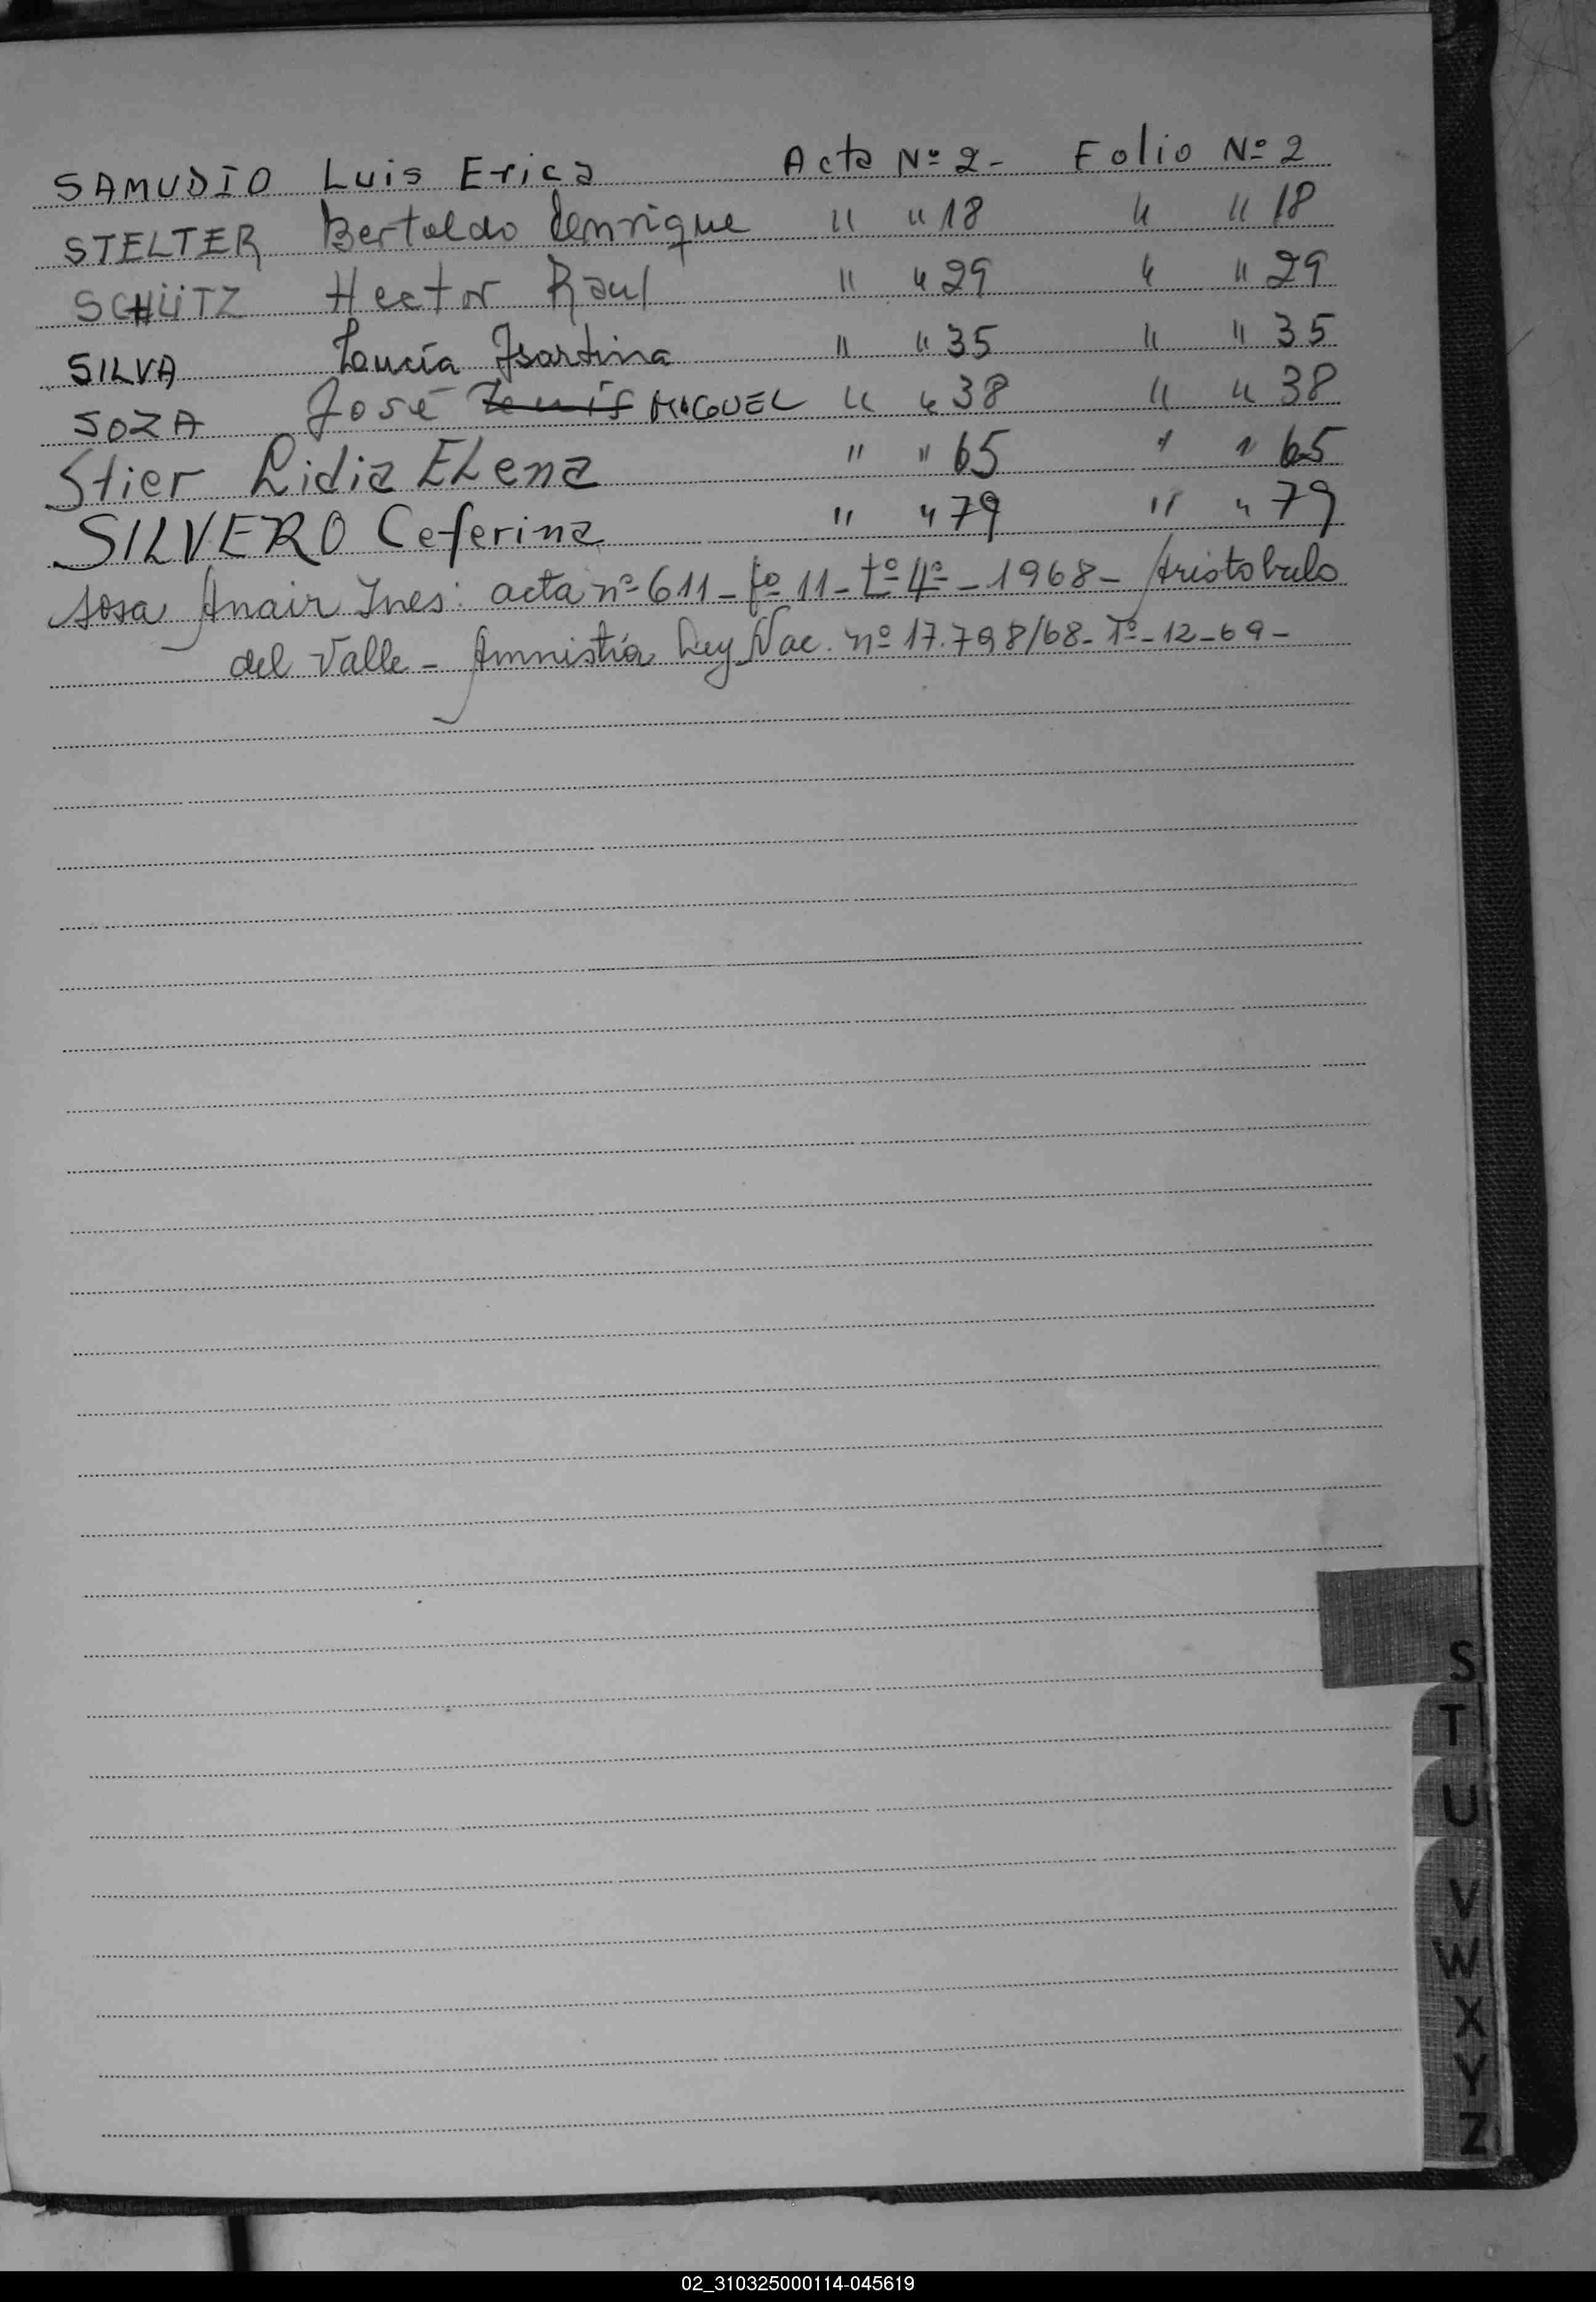 SAMUDIO Luis Erica Acta Nº 2- Folio Nº 2
STELTER Bertoldo Henrique " " 18 " " 18
SCHÜTZ Hector Raul " " 29 " " 29
SILVA Isartina " " 35 " " 35
SOZA José MIGUEL " " 38 " " 38
Stier Lidia ELena " " 65 " " 65
SILVERO Ceferina " " 79 " " 79
Sosa Anair Ines: acta nº 611 - fº 11 - tº 4º - 1968 - Aristobulo
del Valle - Amnistía Ley Nac. nº 17.798/68 - 1º - 12 - 69 -
S
T
U
V
W
X
Y
Z
02_310325000114-045619